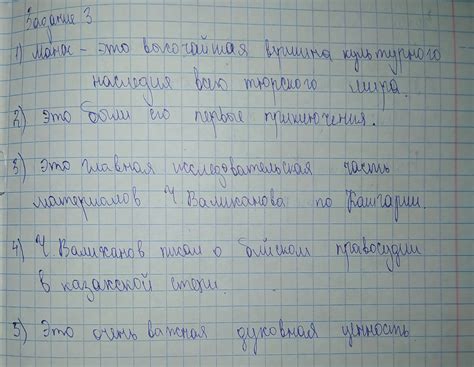 Задание 3
1) Манас - это высочайшая вершина культурного
наследия всего тюрского мира.
2) Это были его первые приключения.
3) Это главная исследовательская часть
материалов Ч. Валиханова по Кашгарии.
4) Ч. Валиханов писал о бийском правосудии
в казахской степи.
5) Это очень важная духовная ценность